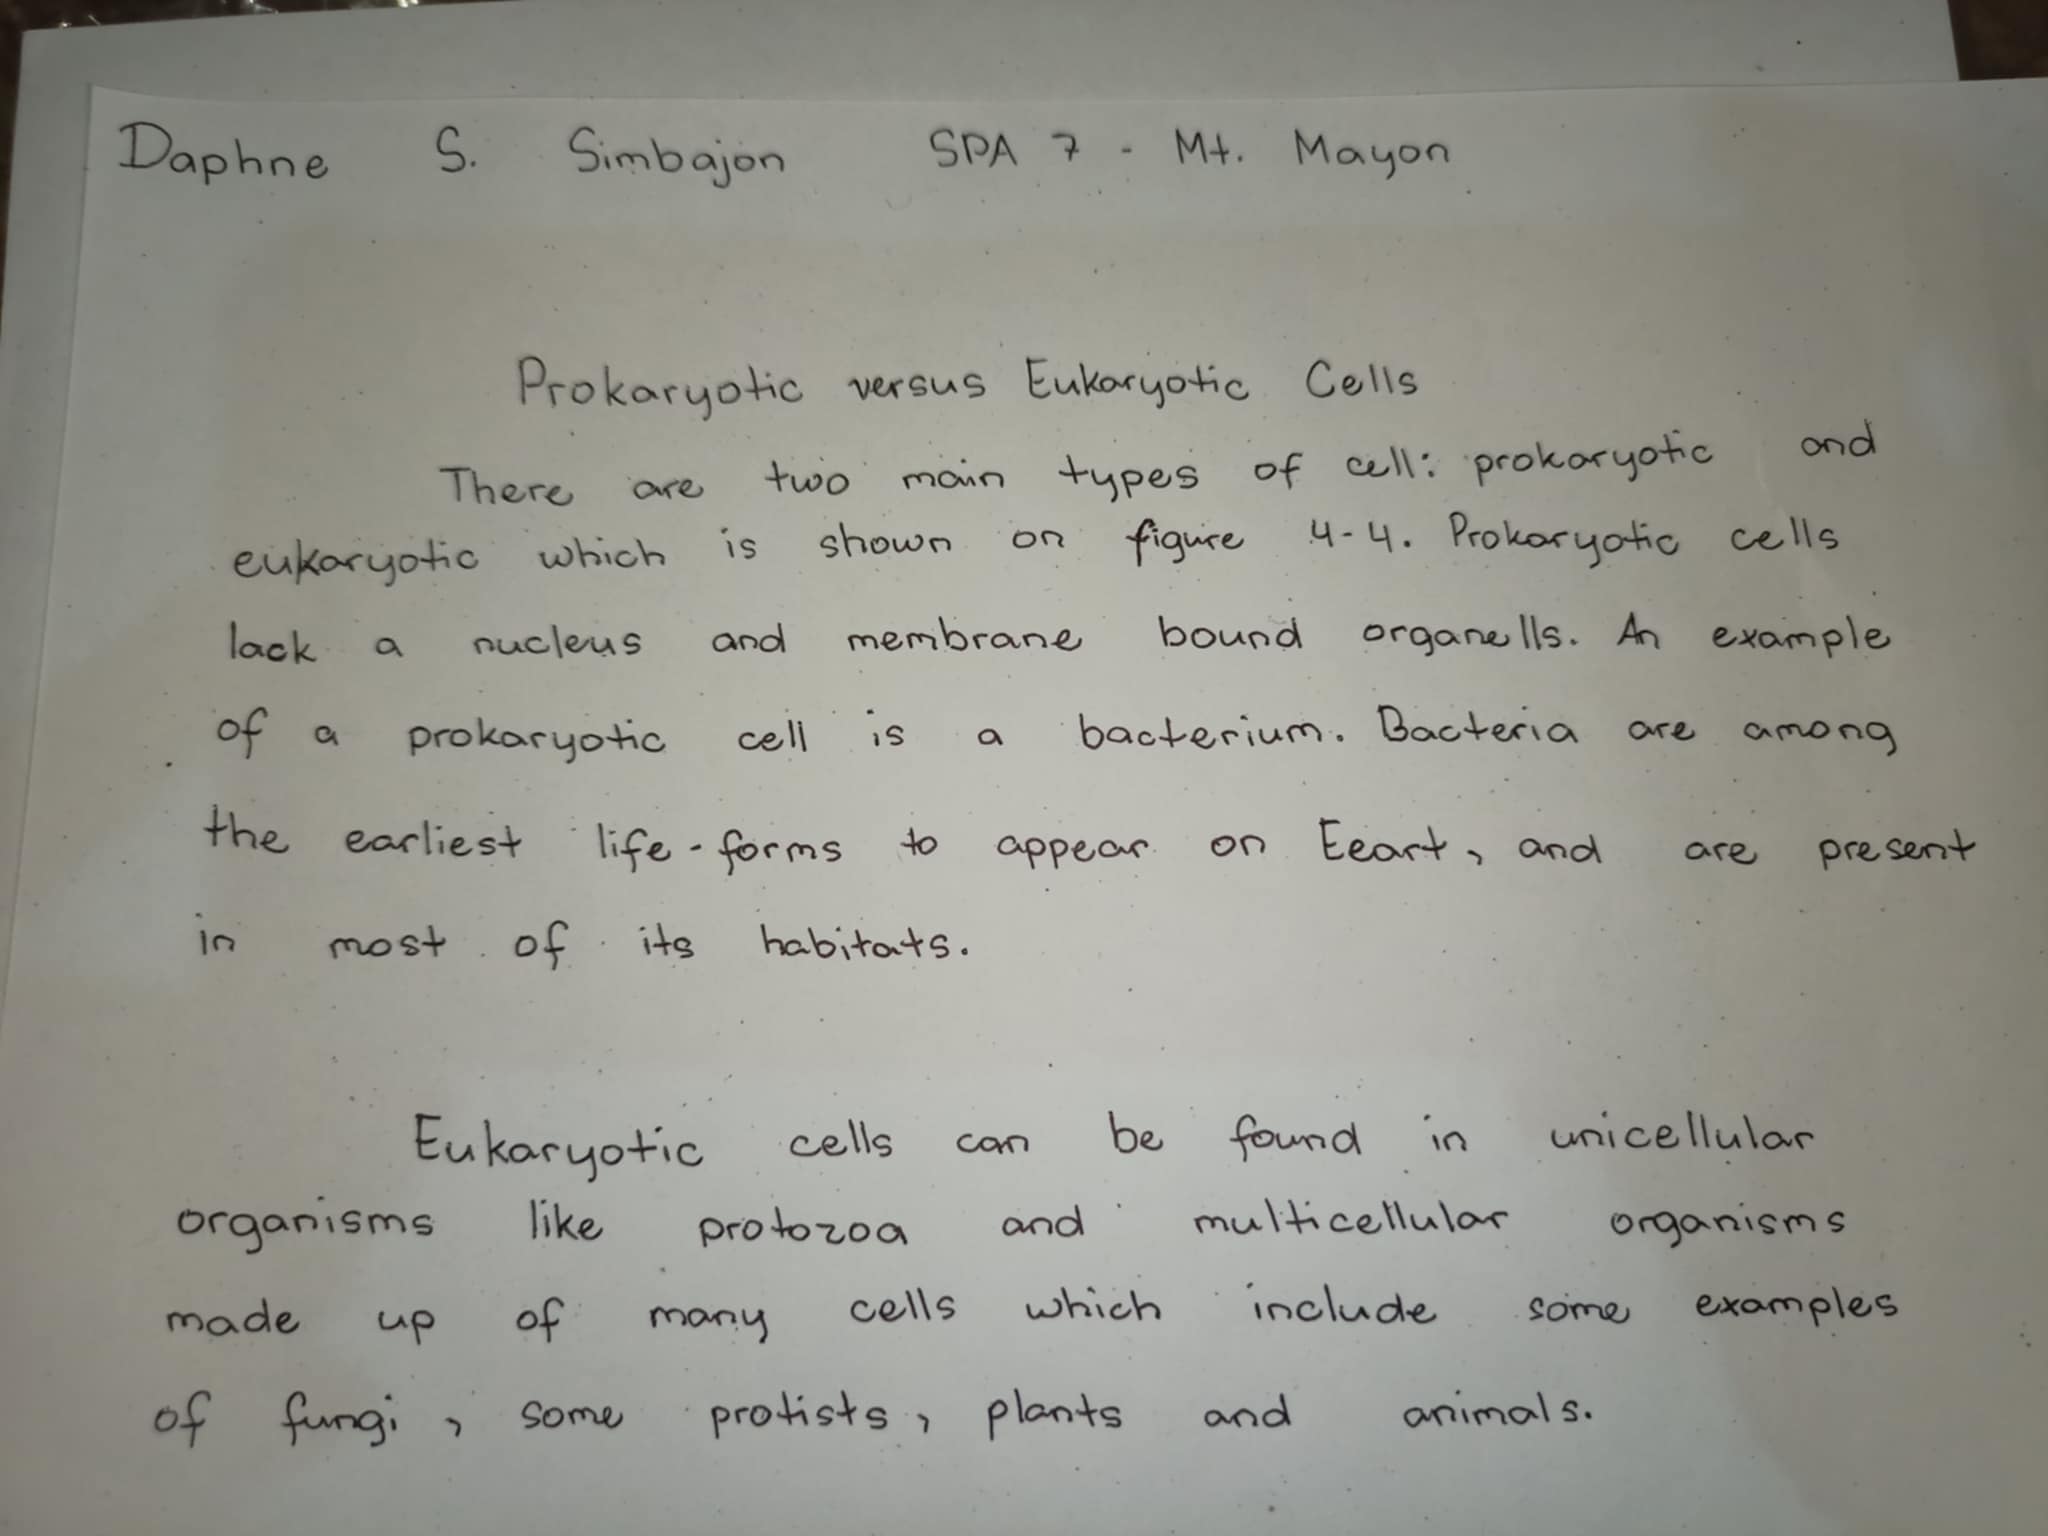 Daphne S. Simbajon SPA 7 - Mt. Mayon
Prokaryotic versus Eukaryotic Cells
There are two main types of cell: prokaryotic and
eukaryotic which is shown on figure 4-4. Prokaryotic cells
lack a nucleus and membrane bound organells. An example
of a prokaryotic cell is a bacterium. Bacteria are among
the earliest life-forms to appear on Eeart, and are present
in most of its habitats.
Eukaryotic cells can be found in unicellular
organisms like protozoa and multicellular organisms
made up of many cells which include some examples
of fungi, some protists, plants and animals.